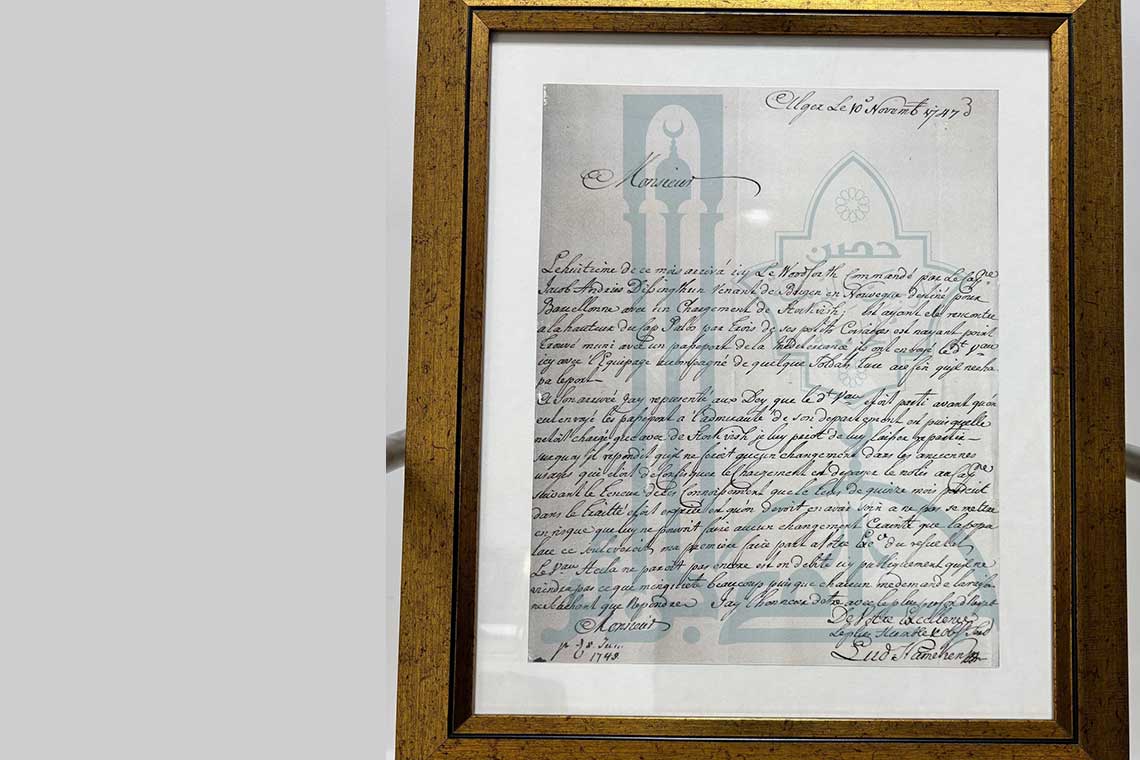 Alger Le 10 Novembr 1747
Monsieur
حصن
Le huitième de ce mois arriva icy Le Woodforth Commandé par Le Cap ne
Jacob Andries venant de Bergen en Norwegue destiné pour
Barcellonne avec un Chargement de Stokvish; et ayant ete rencontre
a la hauteur du Cap Palos par trois de ses petits Corsaires est nayant point
trouvé muni avec un paseport de la mediteranée ils ont envoyé le dt vau
icy avec l'Equipage acompagné de quelque Soldats turc afin qu'il necha
pa leport
A Son arrivée Jay representé aux Dey que le dt Vau estoit parti avant qu'on
eut envoyé les paseport a l'admirauté de son departement on puis qu'elle
netoit chargé que avec de Stokvish je luy priot de luy laisser repartir
suaquoy il repondit qu'il ne feroit auqun changement dans les anciennes
usages qui etoit de Confisquer le Chargement et de payer le nolis au Cap ne
suivant le teneur de Connoisement que le tems de quinze mois predit
dans le traitté estoit expiré et qu'on devoit en avoir soin a ne pas se mettre
en risque que luy ne pouvoit faire aucun changement Crainte que la popu
lace ce ma premiere faire part a Votre Exce du
Le Vau ne paroit pas encore est on debite icy publiquement qu'il ne
viendra pas ce qui m'inquiete beaucoup puis que chacun me demande la raison
ne Sachant que Repondre Jay l'honneur detre avec le plus profond Respet
Monsieur
De Votre Excellence
Le plus Humble & Obt Serd
Lud Hameken
1748
الجزائر